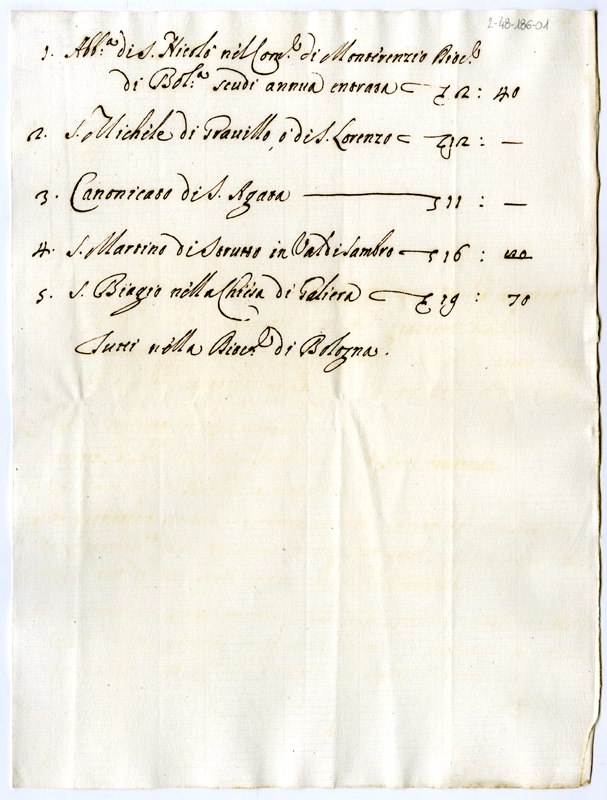 2-48-186-01
1. Abb.a di S. Nicolò nel Com.e di Monterenzio Dioc.e
di Bol.a scudi annua entrata 12 : 40
2. S. Michele di ò di S. Lorenzo 12 : —
3. Canonicato di S. Agata — 11 : —
4. S. Martino di in Val di Sambro 16 :
5. S. Biagio nella Chiesa di Galiera 19 : 70
Tutti nella Dioc.e di Bologna.